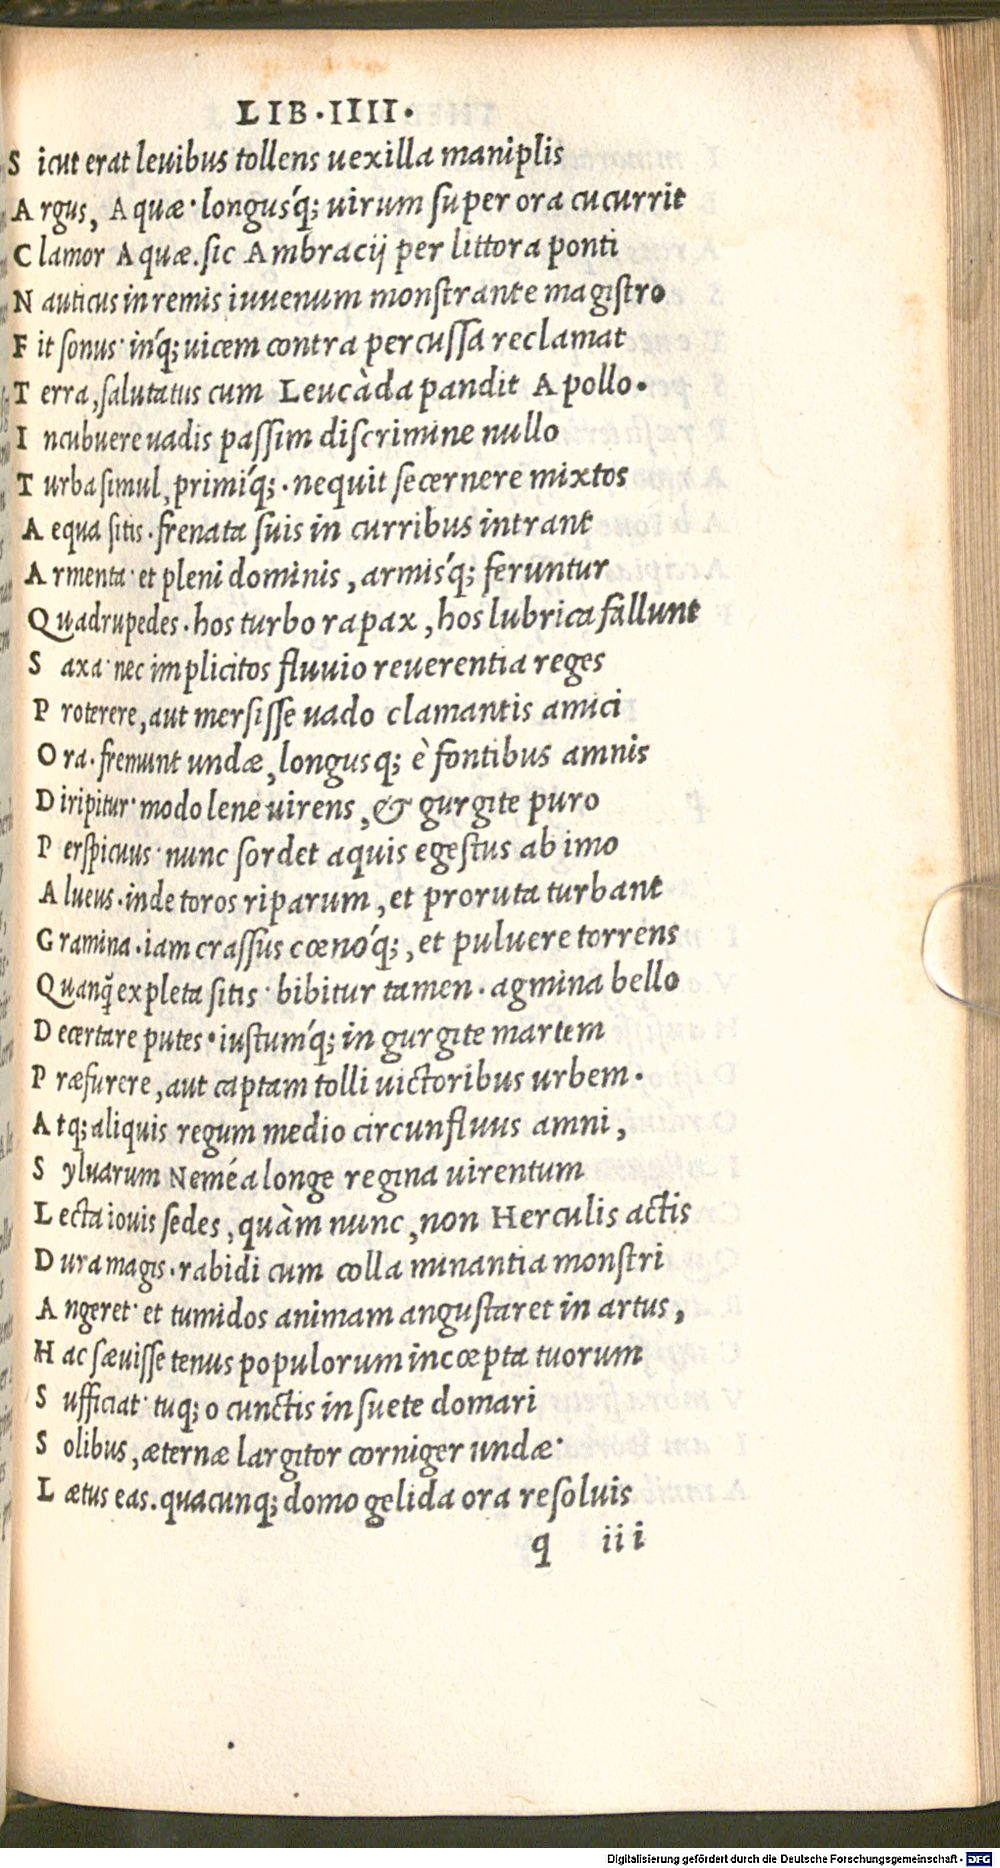 LIB·IIII·
S icut erat leuibus tollens uexilla maniplis
A rgus, Aquæ· longus'q; uirum super ora cucurrit
C lamor Aquæ. sic Ambracij per littora ponti
N auticus in remis iuuenum monstrante magistro
F it sonus· in'q; uicem contra percussa reclamat
T erra, salutatus cum Leucàda pandit Apollo·
I ncubuere uadis passim discrimine nullo
T urba simul, primi'q; · nequit secernere mixtos
A equa sitis · frenata suis in curribus intrant
A rmenta· et pleni dominis, armis'q; feruntur
Q uadrupedes · hos turbo rapax, hos lubrica fallunt
S axa· nec implicitos fluuio reuerentia reges
P roterere, aut mersisse uado clamantis amici
O ra· fremunt undæ, longusq; è fontibus amnis
D iripitur· modo lene uirens, & gurgite puro
P erspicuus· nunc sordet aquis egestus ab imo
A lueus· inde toros riparum, et proruta turbant
G ramina · iam crassus cœno'q;, et puluere torrens
Q uanq̃ expleta sitis· bibitur tamen · agmina bello
D ecertare putes · iustum'q; in gurgite martem
P ræfurere, aut captam tolli uictoribus urbem·
A tq; aliquis regum medio circunfluus amni,
S yluarum Neméa longe regina uirentum
L ecta iouis sedes, quàm nunc, non Herculis actis
D ura magis· rabidi cum colla minantia monstri
A ngeret· et tumidos animam angustaret in artus,
H ac sæuisse tenus populorum incœpta tuorum
S ufficiat· tuq; o cunctis insuete domari
S olibus, æternæ largitor corniger undæ·
L ætus eas. quacunq; domo gelida ora resoluis
q iii
Digitalisierung gefördert durch die Deutsche Forschungsgemeinschaft - DFG